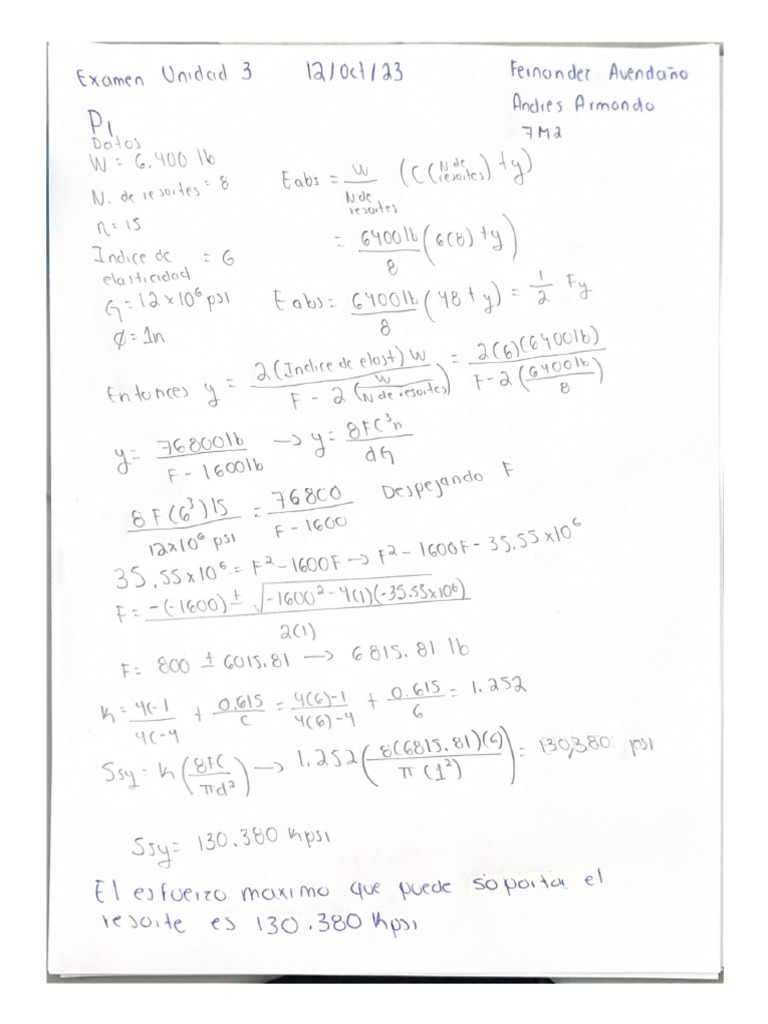 Examen Unidad 3 12/Oct/23 Fernandez Avendaño
Andres Armando
7M2
P1
Datos
W = 6,400 lb
N. de resortes = 8
n = 15
Indice de elasticidad = 6
G = 12 x 10⁶ psi
Ø = 1in
Eabs = W / N de resortes (C(N de resortes) + y)
= 6400lb / 8 (6(8) + y)
Eabs = 6400lb / 8 (48 + y) = 1/2 Fy
Entonces y = 2(Indice de elast) W / F - 2 (W / N de resortes) = 2(6)(6400lb) / F - 2 (6400lb / 8)
y = 76800lb / F - 1600lb → y = 8FC³n / dG
8F(6³)15 / 12x10⁶ psi = 76800 / F - 1600 Despejando F
35.55x10⁶ = F² - 1600F → F² - 1600F - 35.55x10⁶
F = -(-1600) ± √-1600² - 4(1)(-35.55x10⁶) / 2(1)
F = 800 ± 6015.81 → 6815.81 lb
K = 4C-1 / 4C-4 + 0.615 / C = 4(6)-1 / 4(6)-4 + 0.615 / 6 = 1.252
Ssy = K (8FC / πd²) → 1.252 (8(6815.81)(6) / π(1²)) = 130,380 psi
Ssy = 130.380 Kpsi
El esfuerzo maximo que puede soportar el
resorte es 130.380 Kpsi